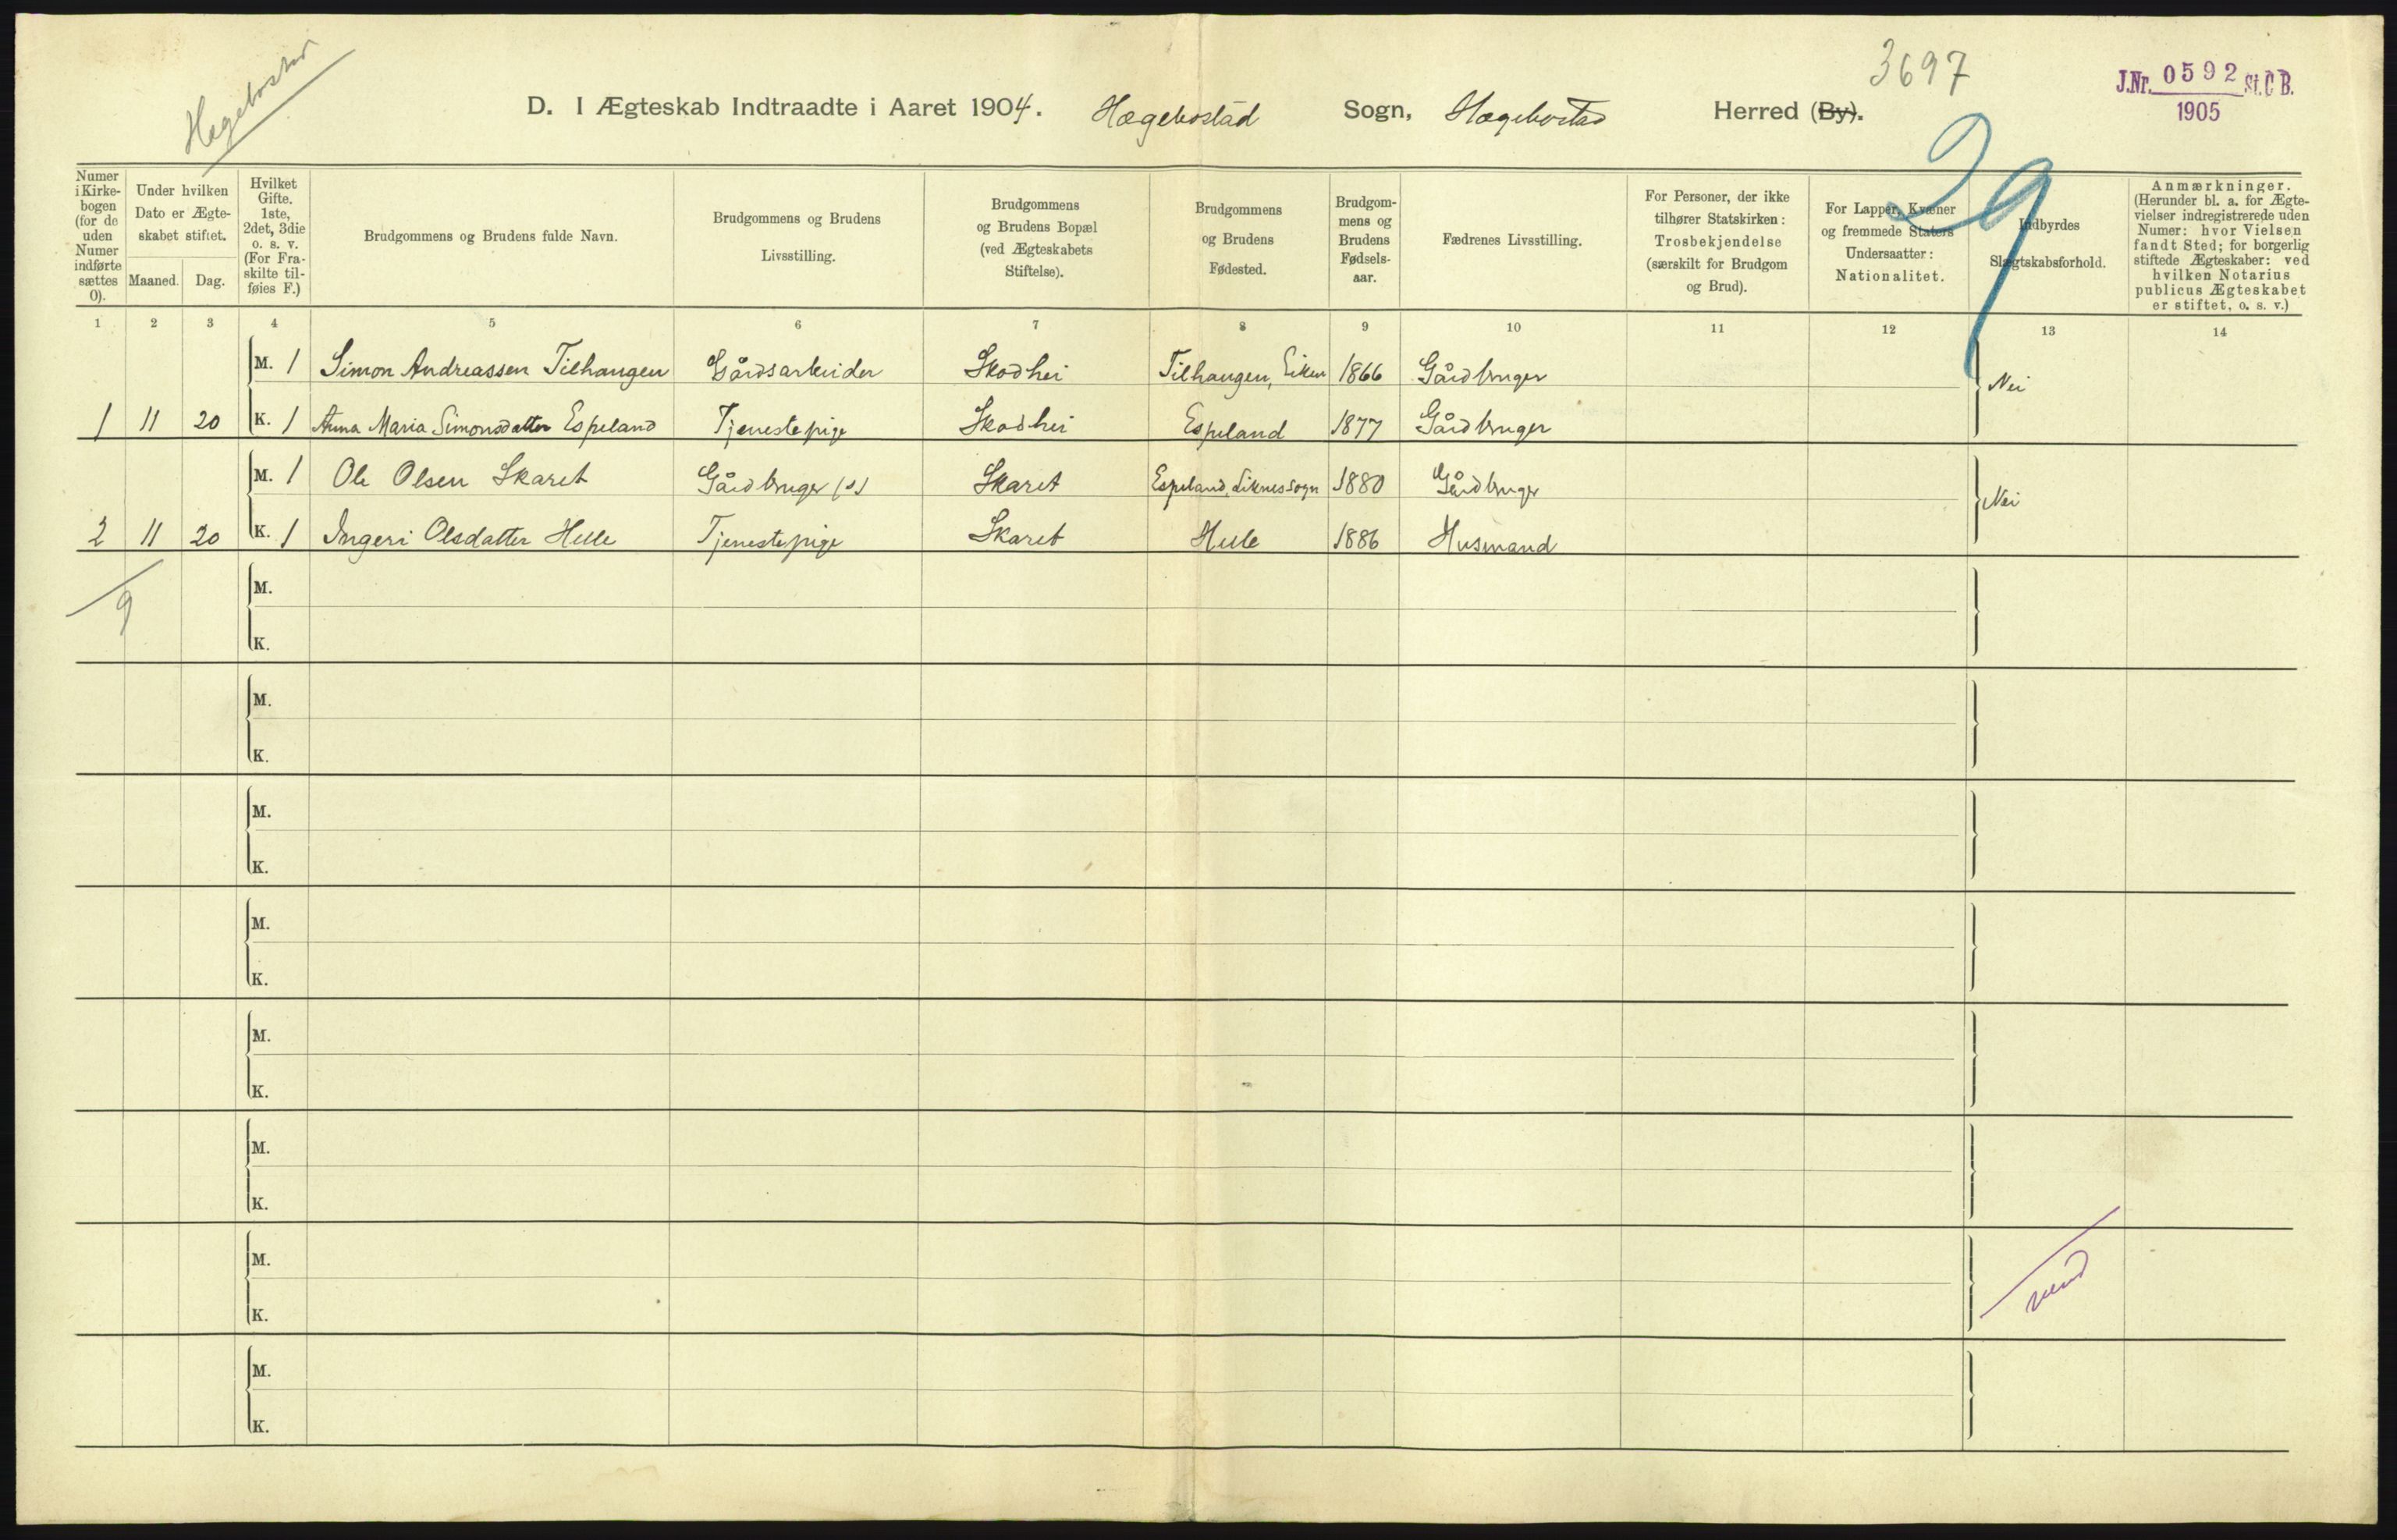 Hegebostad
3697
J.Nr. 0592 St.C B.
1905
D. I Ægteskab Indtraadte i Aaret 1904. Hægebostad Sogn, Hægebostad Herred (By).
29
Numer i Kirkebogen (for de uden Numer indførte sættes 0).
Under hvilken Dato er Ægteskabet stiftet.
Maaned. Dag.
Hvilket Gifte. 1ste, 2det, 3die o. s. v. (For Fraskilte tilføies F.)
Brudgommens og Brudens fulde Navn.
Brudgommens og Brudens Livsstilling.
Brudgommens og Brudens Bopæl (ved Ægteskabets Stiftelse).
Brudgommens og Brudens Fødested.
Brudgommens og Brudens Fødselsaar.
Fædrenes Livsstilling.
For Personer, der ikke tilhører Statskirken: Trosbekjendelse (særskilt for Brudgom og Brud).
For Lapper, Kvæner og fremmede Staters Undersaatter: Nationalitet.
Indbyrdes Slægtskabsforhold.
Anmærkninger. (Herunder bl. a. for Ægtevielser indregistrerede uden Numer: hvor Vielsen fandt Sted; for borgerlig stiftede Ægteskaber: ved hvilken Notarius publicus Ægteskabet er stiftet, o. s. v.)
1 2 3 4 5 6 7 8 9 10 11 12 13 14
M. 1 Simon Andreassen Tilhaugen Gårdsarbeider Skodhei Tilhaugen, Eiken 1866 Gårdbruger Nei
1 11 20 K. 1 Anna Maria Simonsdatter Espeland Tjenestepige Skodhei Espeland 1877 Gårdbruger
M. 1 Ole Olsen Skaret Gårdbruger (s) Skaret Espeland, Liknes sogn 1880 Gårdbruger Nei
2 11 20 K. 1 Ingeri Olsdatter Helle Tjenestepige Skaret Helle 1886 Husmand
9
M.
K.
M.
K.
M.
K.
M.
K.
M.
K.
M.
K.
M.
K.
vend
M.
K.